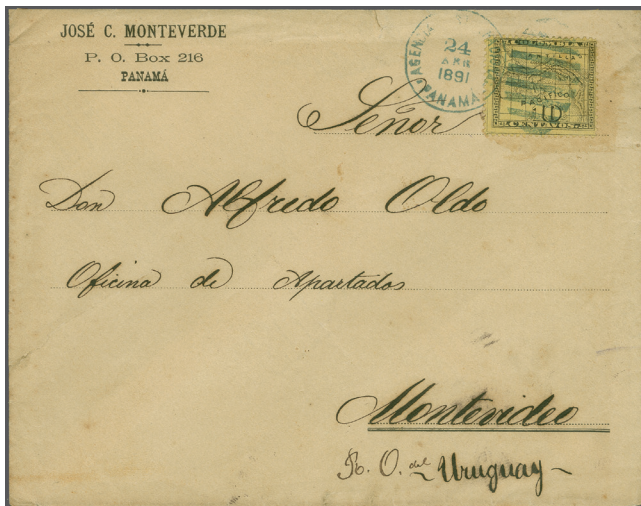 JOSÉ C. MONTEVERDE
P. O. Box 216
PANAMÁ
AGENCIA
24
1891
PANAMA
COLOMBIA
ANTILLA
PACIFICO
10
Señor
Don Alfredo Oldo
Oficina de Apartados
Montevideo
R. O. del Uruguay